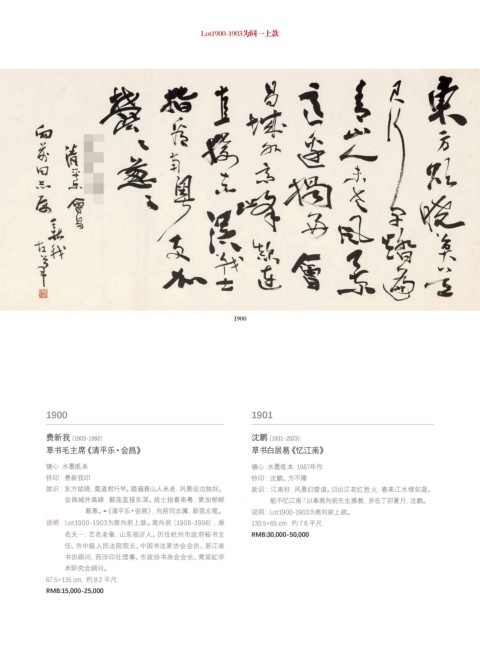 Lot1900-1903为同一上款
東方欲曉莫道
君行早踏遍
青山人未老风景
這邊獨好會
昌城外高峰颠连
直接东溟战士
指看南粤更加
鬱々葱々
清平乐 會昌
向前同志属 新我
左笔
1900
1900
费新我 (1903-1992)
草书毛主席《清平乐·会昌》
镜心 水墨纸本
钤印：费新我印
款识：东方欲晓，莫道君行早。踏遍青山人未老，风景这边独好。
会昌城外高峰，颠连直接东溟。战士指看南粤，更加郁郁
葱葱。《清平乐·会昌》，向前同志属，新我左笔。
说明：Lot1900-1903为商向前上款。商向前（1908-1998），原
名天一，艺名老看，山东临沂人。历任杭州市政府秘书主
任、市中级人民法院院长。中国书法家协会会员、浙江省
书协顾问、西泠印社理事、市政协书画会会长、黄宾虹学
术研究会顾问。
67.5×135 cm 约 8.2 平尺
RMB:15,000-25,000
1901
沈鹏 (1931-2023)
草书白居易《忆江南》
镜心 水墨纸本 1987年作
钤印：沈鹏、方不隅
款识：江南好，风景旧曾谙。日出江花红胜火，春来江水绿如蓝。
能不忆江南？以奉商向前先生雅教，岁在丁卯夏月，沈鹏。
说明：Lot1900-1903为商向前上款。
130.5×65 cm 约 7.6 平尺
RMB:30,000-50,000